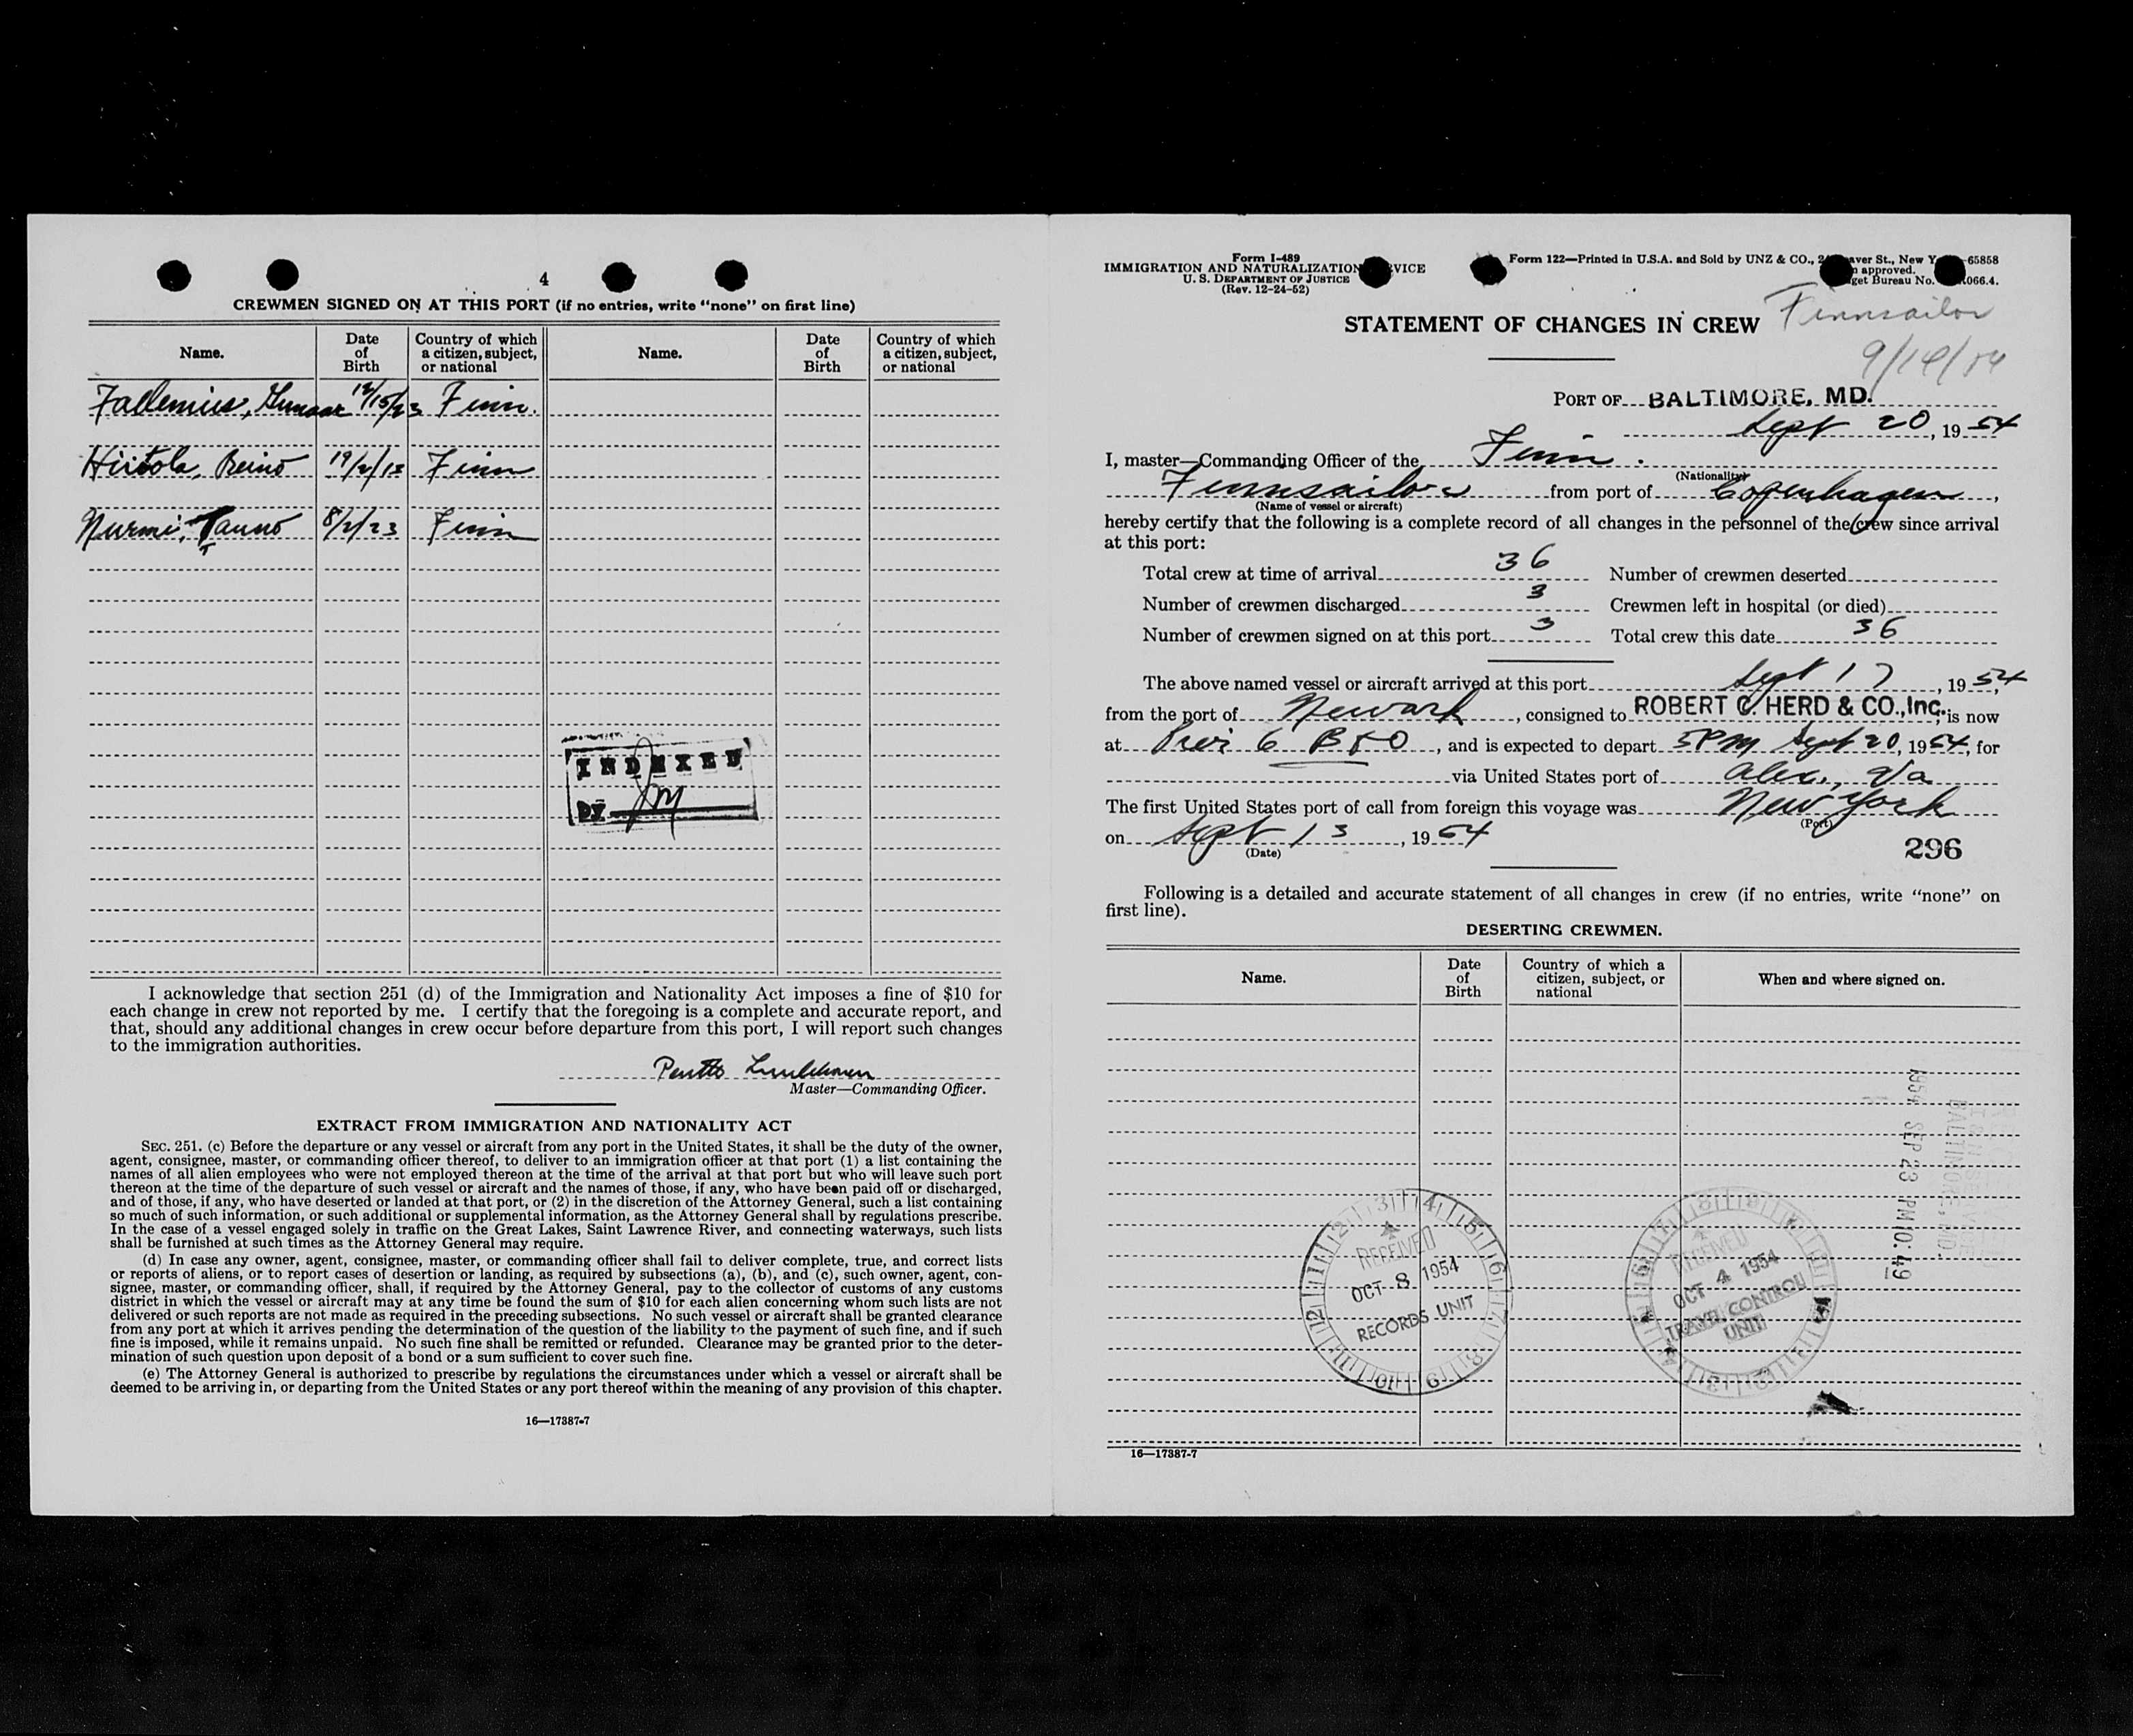 4
CREWMEN SIGNED ON AT THIS PORT (if no entries, write "none" on first line)
Name. Date of Birth Country of which a citizen, subject, or national Name. Date of Birth Country of which a citizen, subject, or national
Fallenius, Gunnar 12/15/23 Finn.
Hiitola, Reino Finn
Nurmi, Tauno 8/2/23 Finn
INDEXED
BY
I acknowledge that section 251 (d) of the Immigration and Nationality Act imposes a fine of $10 for
each change in crew not reported by me. I certify that the foregoing is a complete and accurate report, and
that, should any additional changes in crew occur before departure from this port, I will report such changes
to the immigration authorities.
Master—Commanding Officer.
EXTRACT FROM IMMIGRATION AND NATIONALITY ACT
SEC. 251. (c) Before the departure or any vessel or aircraft from any port in the United States, it shall be the duty of the owner,
agent, consignee, master, or commanding officer thereof, to deliver to an immigration officer at that port (1) a list containing the
names of all alien employees who were not employed thereon at the time of the arrival at that port but who will leave such port
thereon at the time of the departure of such vessel or aircraft and the names of those, if any, who have been paid off or discharged,
and of those, if any, who have deserted or landed at that port, or (2) in the discretion of the Attorney General, such a list containing
so much of such information, or such additional or supplemental information, as the Attorney General shall by regulations prescribe.
In the case of a vessel engaged solely in traffic on the Great Lakes, Saint Lawrence River, and connecting waterways, such lists
shall be furnished at such times as the Attorney General may require.
(d) In case any owner, agent, consignee, master, or commanding officer shall fail to deliver complete, true, and correct lists
or reports of aliens, or to report cases of desertion or landing, as required by subsections (a), (b), and (c), such owner, agent, con-
signee, master, or commanding officer, shall, if required by the Attorney General, pay to the collector of customs of any customs
district in which the vessel or aircraft may at any time be found the sum of $10 for each alien concerning whom such lists are not
delivered or such reports are not made as required in the preceding subsections. No such vessel or aircraft shall be granted clearance
from any port at which it arrives pending the determination of the question of the liability to the payment of such fine, and if such
fine is imposed, while it remains unpaid. No such fine shall be remitted or refunded. Clearance may be granted prior to the deter-
mination of such question upon deposit of a bond or a sum sufficient to cover such fine.
(e) The Attorney General is authorized to prescribe by regulations the circumstances under which a vessel or aircraft shall be
deemed to be arriving in, or departing from the United States or any port thereof within the meaning of any provision of this chapter.
16—17387-7
Form I-489
IMMIGRATION AND NATURALIZATION VICE
U. S. DEPARTMENT OF JUSTICE
(Rev. 12-24-52)
Form 122—Printed in U.S.A. and Sold by UNZ & CO., 2 aver St., New Y -65858
approved.
get Bureau No. 066.4.
STATEMENT OF CHANGES IN CREW
Finnsailor
PORT OF BALTIMORE, MD.
Sept 20, 1954
I, master—Commanding Officer of the Finn.
(Nationality)
Finnsailor from port of Copenhagen,
(Name of vessel or aircraft)
hereby certify that the following is a complete record of all changes in the personnel of the crew since arrival
at this port:
Total crew at time of arrival 36 Number of crewmen deserted
Number of crewmen discharged 3 Crewmen left in hospital (or died)
Number of crewmen signed on at this port 3 Total crew this date 36
The above named vessel or aircraft arrived at this port Sept 17, 1954,
from the port of Newark, consigned to ROBERT C. HERD & CO., Inc., is now
at Pier 6 B&O, and is expected to depart 5PM Sept 20, 1954, for
via United States port of Alex., Va
The first United States port of call from foreign this voyage was New York
(Port)
on Sept 13, 1954
(Date)
296
Following is a detailed and accurate statement of all changes in crew (if no entries, write "none" on
first line).
DESERTING CREWMEN.
Name. Date of Birth Country of which a citizen, subject, or national When and where signed on.
1954 SEP 23 PM 10:49
BALTIMORE, MD.
RECEIVED
OCT 8 1954
RECORDS UNIT
RECEIVED
OCT 4 1954
TRAVEL CONTROL
UNIT
16—17387-7